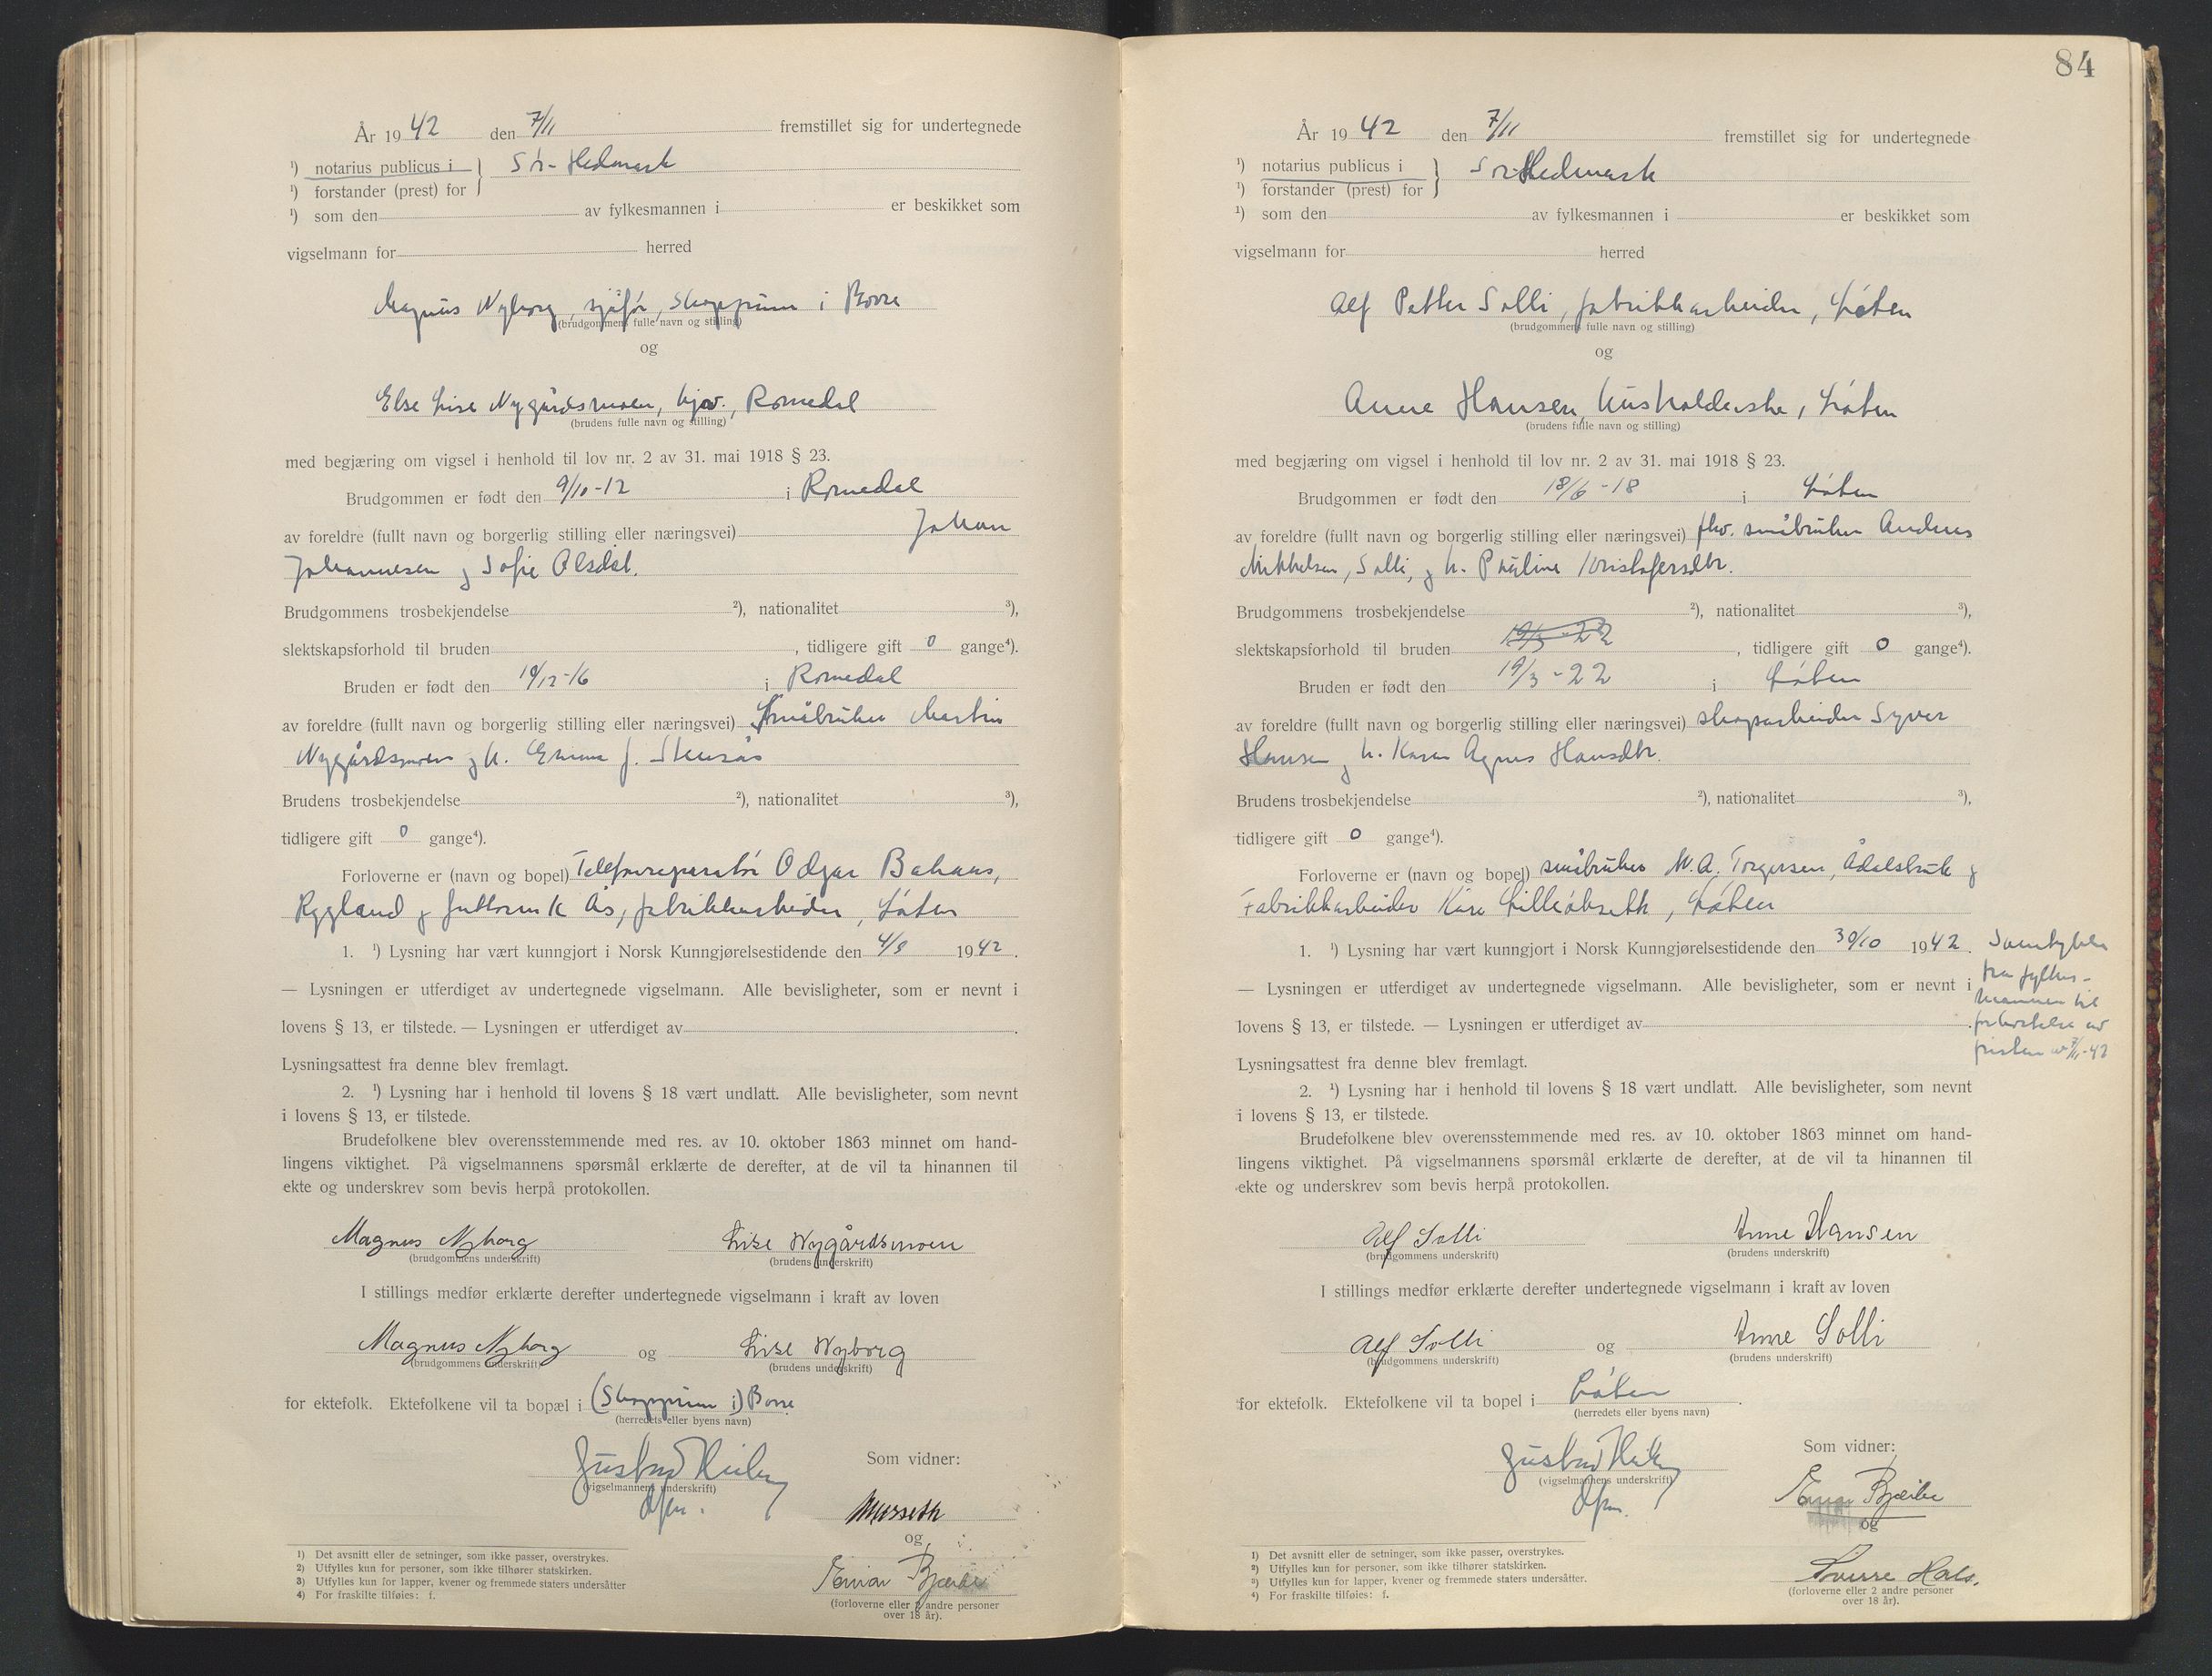 År 1942 den 7/11 fremstillet sig for undertegnede
¹) notarius publicus i } Sør-Hedmark
¹) forstander (prest) for
¹) som den av fylkesmannen i er beskikket som
vigselmann for herred
Magnus Nyborg, sjåfør, Skoppum i Borre
(brudgommens fulle navn og stilling)
og
Else Lise Nygårdsmoen, hjv., Romedal
(brudens fulle navn og stilling)
med begjæring om vigsel i henhold til lov nr. 2 av 31. mai 1918 § 23.
Brudgommen er født den 9/10-12 i Romedal
av foreldre (fullt navn og borgerlig stilling eller næringsvei) Johan
Johannesen og Sofie Olsdtr.
Brudgommens trosbekjendelse ²), nationalitet ³),
slektskapsforhold til bruden , tidligere gift 0 gange⁴).
Bruden er født den 19/12-16 i Romedal
av foreldre (fullt navn og borgerlig stilling eller næringsvei) Småbruker Martin
Nygårdsmoen og h. Emma f.
Brudens trosbekjendelse ²), nationalitet ³),
tidligere gift 0 gange⁴).
Forloverne er (navn og bopel) Telefonreparatør Odgar Bakaas,
Rygland og Guttorm K Ås, fabrikkarbeider, Løten
1. ¹) Lysning har vært kunngjort i Norsk Kunngjørelsestidende den 4/8 1942.
— Lysningen er utferdiget av undertegnede vigselmann. Alle bevisligheter, som er nevnt i
lovens § 13, er tilstede. — Lysningen er utferdiget av .
Lysningsattest fra denne blev fremlagt.
2. ¹) Lysning har i henhold til lovens § 18 vært undlatt. Alle bevisligheter, som nevnt
i lovens § 13, er tilstede.
Brudefolkene blev overensstemmende med res. av 10. oktober 1863 minnet om hand-
lingens viktighet. På vigselmannens spørsmål erklærte de derefter, at de vil ta hinannen til
ekte og underskrev som bevis herpå protokollen.
Magnus Nyborg Lise Nygårdsmoen
(brudgommens underskrift) (brudens underskrift)
I stillings medfør erklærte derefter undertegnede vigselmann i kraft av loven
Magnus Nyborg og Lise Nyborg
(brudgommens underskrift) (brudens underskrift)
for ektefolk. Ektefolkene vil ta bopæl i (Skoppum i) Borre
(herredets eller byens navn)
Gustav Heiberg Som vidner:
(vigselmannens underskrift)
dfm.
og
Einar Bjerke
(forloverne eller 2 andre personer
over 18 år).
1) Det avsnitt eller de setninger, som ikke passer, overstrykes.
2) Utfylles kun for personer, som ikke tilhører statskirken.
3) Utfylles kun for lapper, kvener og fremmede staters undersåtter
4) For fraskilte tilføies: f.
84
År 1942 den 7/11 fremstillet sig for undertegnede
¹) notarius publicus i } Sør-Hedmark
¹) forstander (prest) for
¹) som den av fylkesmannen i er beskikket som
vigselmann for herred
Alf Petter Solli, fabrikkarbeider, Løten
(brudgommens fulle navn og stilling)
og
Anne Hansen, husholderske, Løten
(brudens fulle navn og stilling)
med begjæring om vigsel i henhold til lov nr. 2 av 31. mai 1918 § 23.
Brudgommen er født den 18/6-18 i Løten
av foreldre (fullt navn og borgerlig stilling eller næringsvei) fhv. småbruker Anders
Mikkelsen, Solli, og h. Pauline Kristofersdtr.
Brudgommens trosbekjendelse ²), nationalitet ³),
slektskapsforhold til bruden 19/3-22 , tidligere gift 0 gange⁴).
Bruden er født den 19/3-22 i Løten
av foreldre (fullt navn og borgerlig stilling eller næringsvei) skogsarbeider Syver
Hansen og h. Karen Agnes Hansdtr.
Brudens trosbekjendelse ²), nationalitet ³),
tidligere gift 0 gange⁴).
Forloverne er (navn og bopel) småbruker M. A. Torgersen, Ådalsbruk og
Fabrikkarbeider Kåre Lilleökseth, Løten
1. ¹) Lysning har vært kunngjort i Norsk Kunngjørelsestidende den 30/10 1942. Samtykke
fra fylkes-
mannen til
forkortelse av
fristen av 7/11-42
— Lysningen er utferdiget av undertegnede vigselmann. Alle bevisligheter, som er nevnt i
lovens § 13, er tilstede. — Lysningen er utferdiget av .
Lysningsattest fra denne blev fremlagt.
2. ¹) Lysning har i henhold til lovens § 18 vært undlatt. Alle bevisligheter, som nevnt
i lovens § 13, er tilstede.
Brudefolkene blev overensstemmende med res. av 10. oktober 1863 minnet om hand-
lingens viktighet. På vigselmannens spørsmål erklærte de derefter, at de vil ta hinannen til
ekte og underskrev som bevis herpå protokollen.
Alf Solli Anne Hansen
(brudgommens underskrift) (brudens underskrift)
I stillings medfør erklærte derefter undertegnede vigselmann i kraft av loven
Alf Solli og Anne Solli
(brudgommens underskrift) (brudens underskrift)
for ektefolk. Ektefolkene vil ta bopel i Løten .
(herredets eller byens navn)
Gustav Heiberg Som vidner:
(vigselmannens underskrift)
dfm.
Einar Bjerke
og
Sverre Hals.
(forloverne eller 2 andre personer
over 18 år).
1) Det avsnitt eller de setninger, som ikke passer, overstrykes.
2) Utfylles kun for personer, som ikke tilhører statskirken.
3) Utfylles kun for lapper, kvener og fremmede staters undersåtter.
4) For fraskilte tilføies: f.